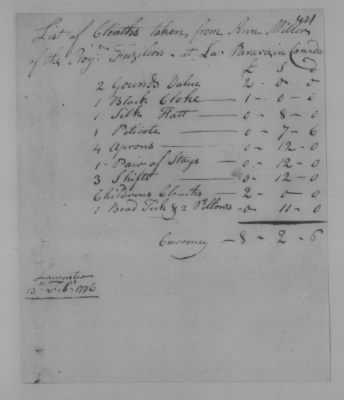 421
List of Cloaths taken, from Ann Miller
of the Roy.l Fuziliers - at La Pararie in Canada
£ S D
2 Gounds Value 2 - 0 - 0
1 Black Cloke — 1 - 0 - 0
1 Silk Hatt — 0 - 8 - 0
1 Piticote — 0 - 7 - 6
4 Aprons — 0 - 12 - 0
1 - Pair of Stays — 0 - 12 - 0
3 Shifts — 0 - 12 - 0
Childrens Cloaths — 2 - 0 - 0
1 Bead Tick & 2 Pillows - 0 11 - 0
Currency — 8 - 2 - 6
Lancaster
13th Feb.y 1776